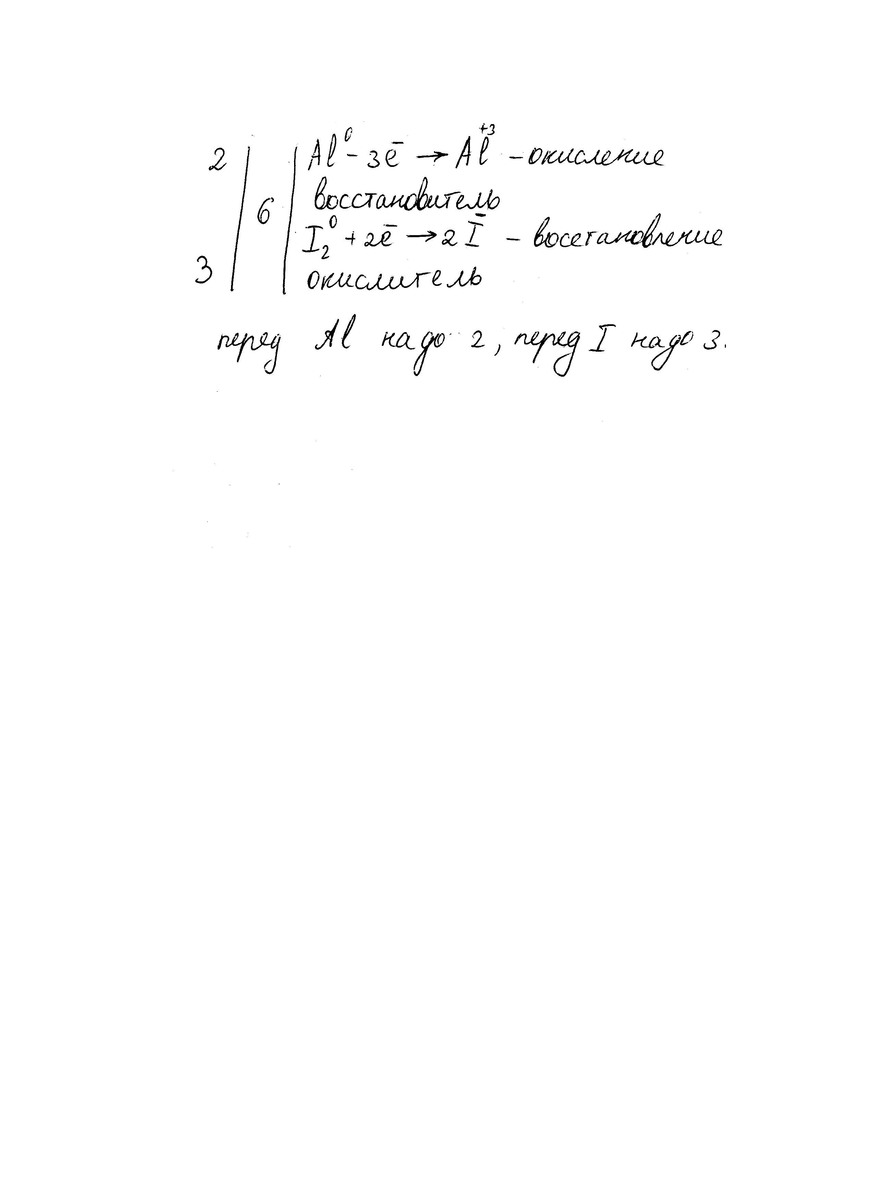 2 | | Al⁰ - 3ē → Al⁺³ - окисление
6 восстановитель
I₂⁰ + 2ē → 2 I⁻ - восстановление
3 | | окислитель
перед Al надо 2, перед I надо 3.